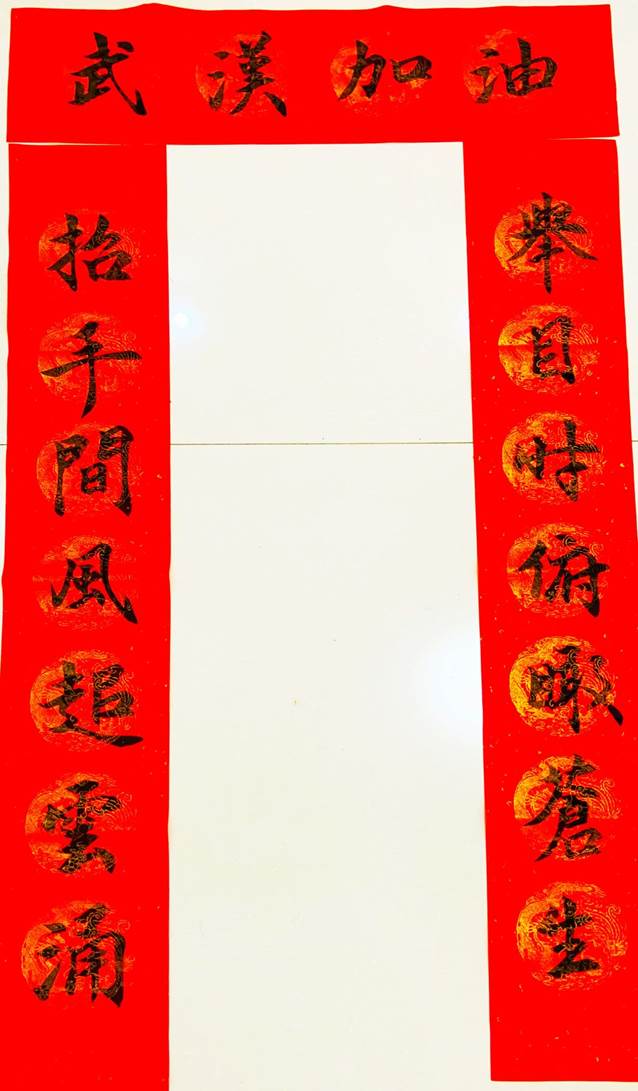 武漢加油
抬手間風起雲涌
舉目时俯瞰蒼生